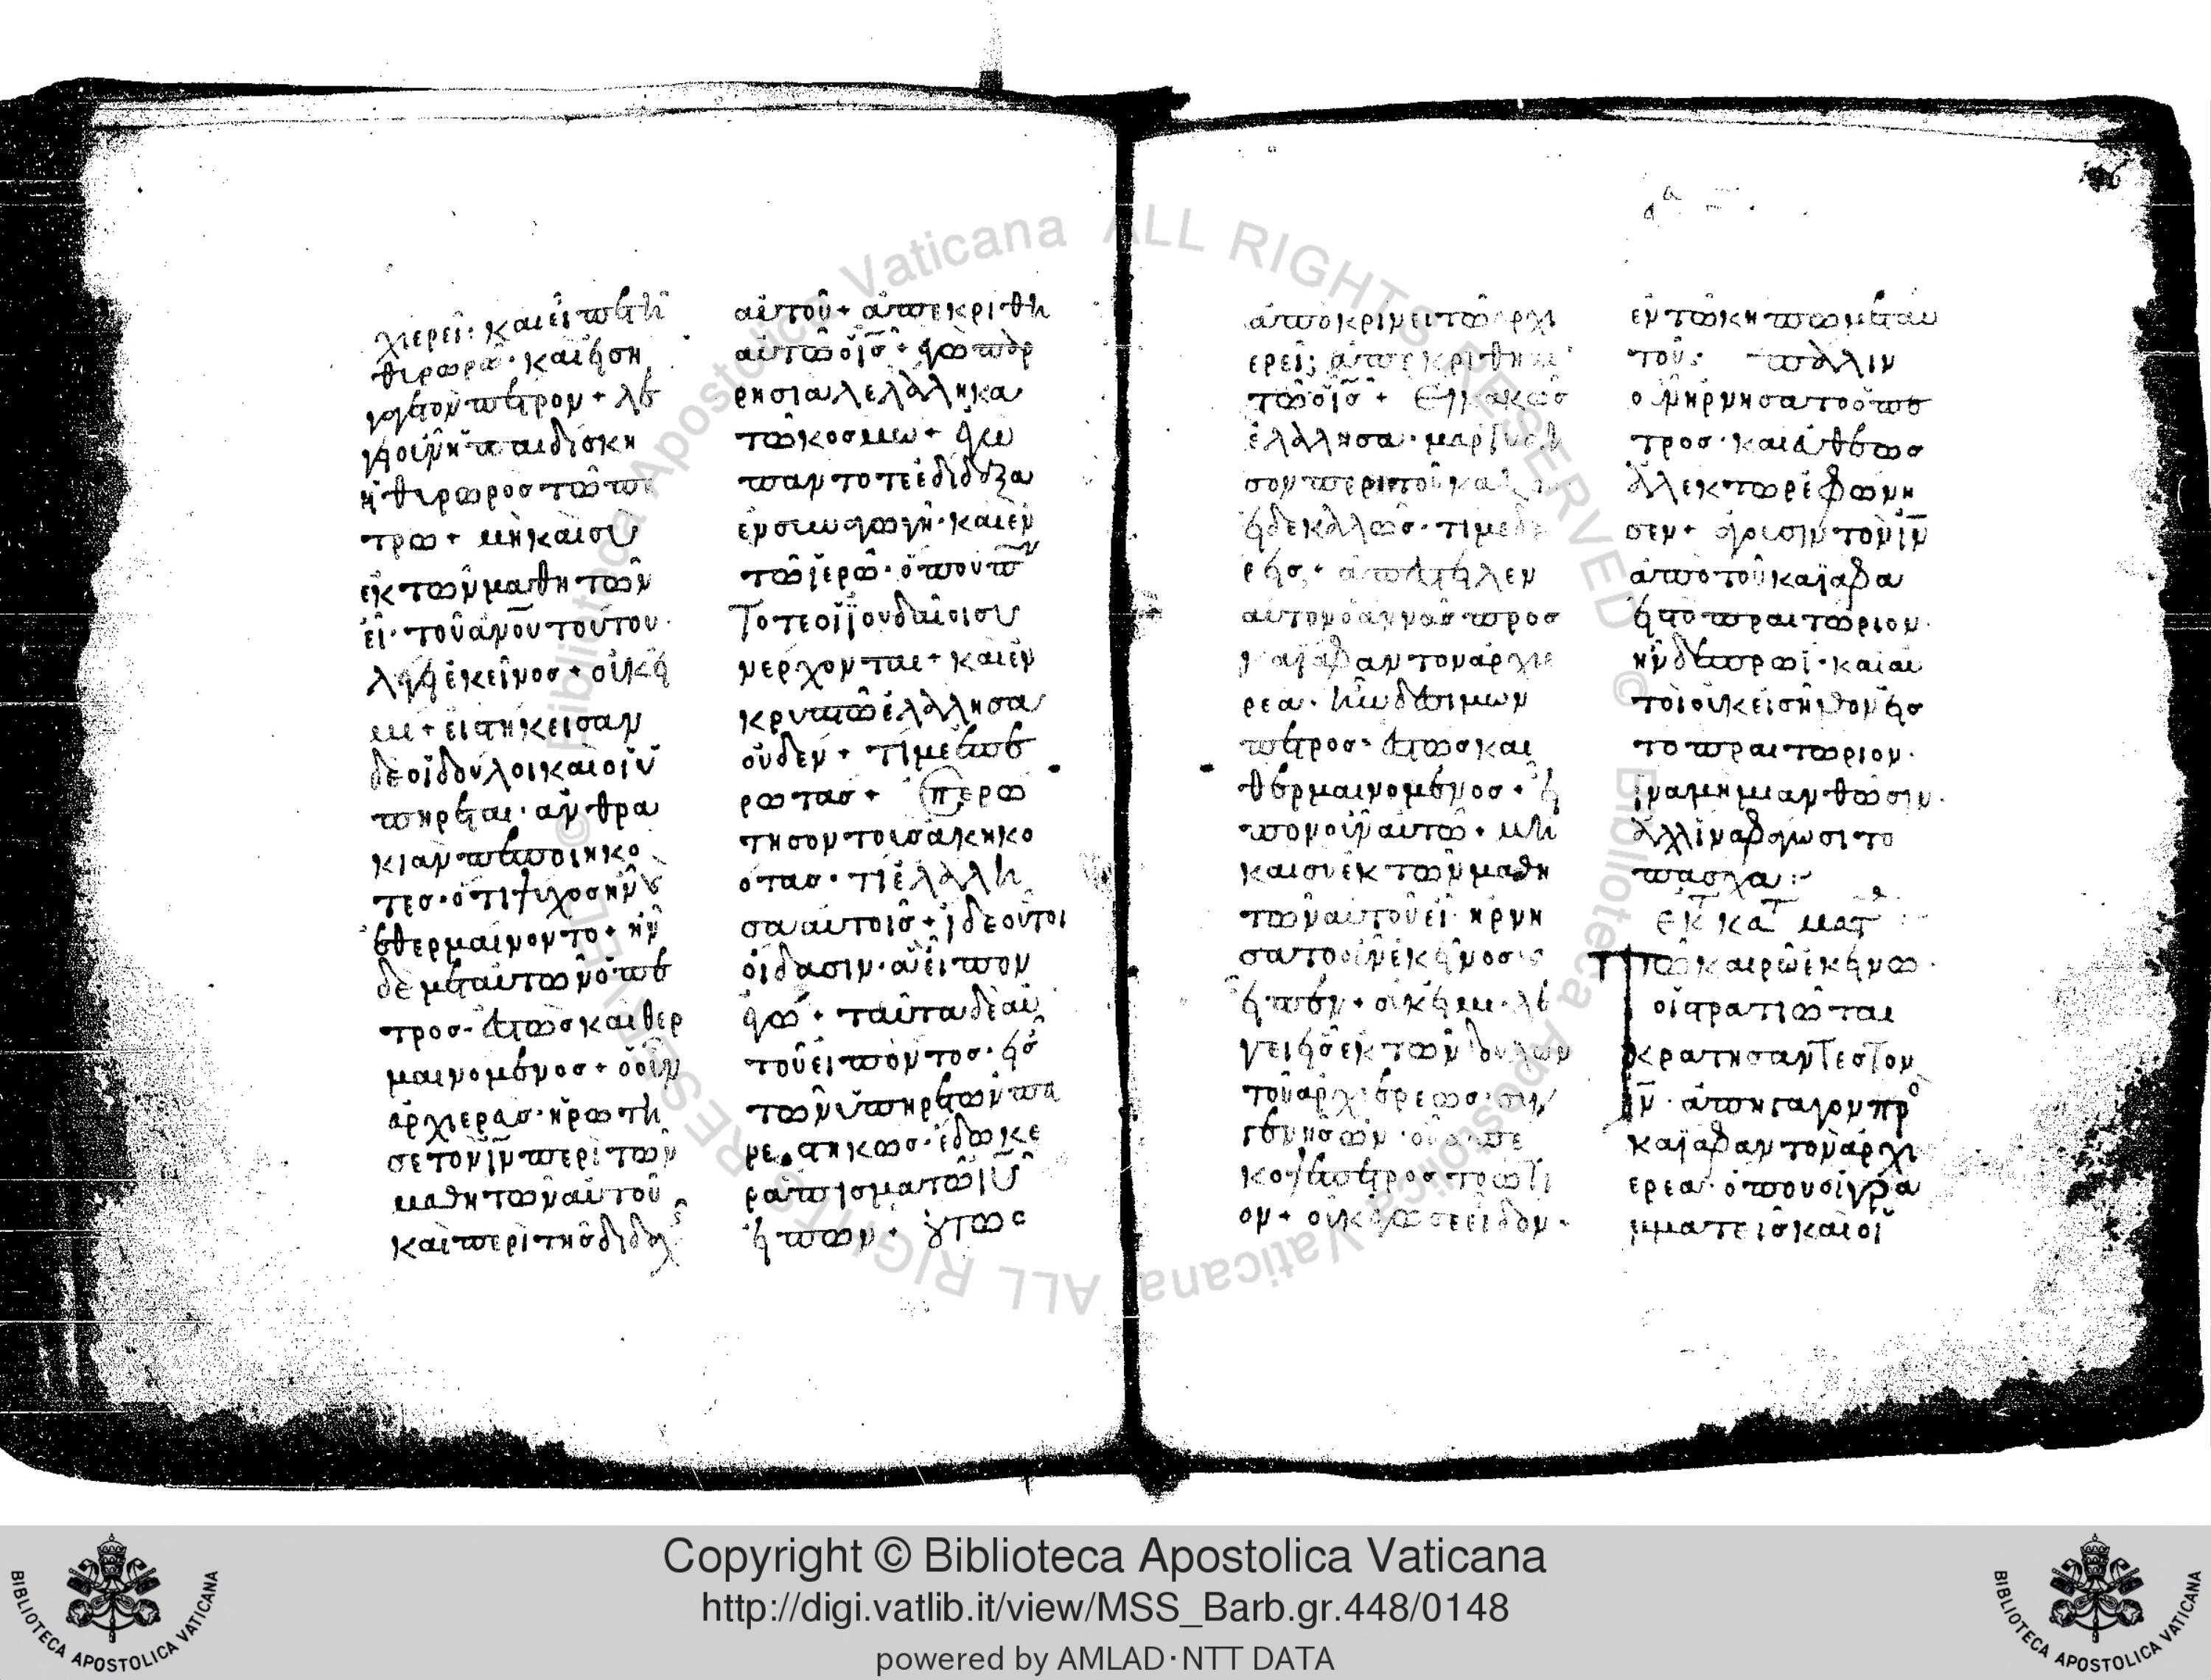 χιερεῖ: καὶ εἶπε τῆ
θυρωρῶ· καὶ εἰση
γαγε τὸν πετρον + λε
γει οὖν ἡ παιδίσκη
ἡ θυρωρος τῶ πε
τρω + μὴ καὶ συ
ἐκ τῶν μαθητῶν
εἶ· τοῦ ἀνου τούτου·
λέγει ἐκεῖνος + οὐκ εἰ
μι + εἱστηκεισαν
δὲ οἱ δοῦλοι καὶ οἱ ὑ
πηρεται· ἀνθρα
κιαν πεποιηκο
τες· ὅτι ψυχος ἦν
ἐθερμαίνοντο + ἦν
δὲ μετ αυτῶν ὁ πε
τρος· ἑστὼς καὶ θερ
μαινομενος + ὁ οὖν
ἀρχιερας· ἠρωτη
σε τὸν ἰν περὶ τῶν
μαθητῶν αὐτοῦ
καὶ περὶ τῆς διδαχ
αὐτοῦ + ἀπεκριθη
αὐτῶ ὁ ις + ἐγὼ παρ
ρησια λελάληκα
τῶ κοσμω + ἐγω
παντοτε ἐδίδαξα
ἐν συναγωγῆ· καὶ ἐν
τῶ ἱερῶ· ὅπου π
Τοτε οἱ ἰουδαῖοι συ
νερχονται + καὶ ἐν
κρυπτῶ ἐλάλησα
οὐδεν + τί με ἐπε
ρωτας + ἐπερω
τησον τους ἀκηκο
ότας· τί ἐλάλη
σα αυτοῖς + ἰδε οὗτοι
οἴδασιν· ἃ εἶπον
ἐγώ + ταῦτα δὲ αὐ
τοῦ εἰπόντος· εἷς
τῶν ὑπηρετῶν πα
ρεστηκως· ἔδωκε
ράπισμα τῶ ιυ
εἰπων + οὕτως
ἀποκρινει τῶ ἀρχι
ερεῖ; ἀπεκριθη αυ
τῶ ὁ ις + Ει κακῶς
ἐλάλησα· μαρτυρη
σον περι τοῦ κακ
εἰ δε καλῶς· τί με δε
ρεις + ἀπέστειλεν
αυτον ὁ αννας προς
καϊάφαν τον ἀρχιε
ρεα· ἦν δὲ σιμων
πετρος· ἑστὼς και
θερμαινομενος + εἶ
πον οὖν αὐτῶ + μη
και συ ἐκ τῶν μαθη
τῶν αυτοῦ εἶ· ἠρνη
σατο οὖν ἐκεῖνος
εἶπεν + οὐκ εἰμι· λε
γει εἷς ἐκ τῶν δουλων
τοῦ ἀρχιερεως· συγ
γενης ὢν· οὗ ἀπε
κοψε πετρος το ὠτι
ον + οὐκ ἐγώ σε εἶδον·
ἐν τῶ κηπω μετ αυ
τοῦ: πάλιν
οὖν ἠρνησατο ὁ πε
τρος· και εὐθεως
ἀλεκτωρ ἐφωνη
σεν + ἄγουσιν τον ἰν
ἀπο τοῦ καϊαφα
εἰς το πραιτωριον·
ἦν δὲ πρωϊ· και αυ
τοι οὐκ εἰσῆλθον εἰς
το πραιτωριον·
ἵνα μη μιανθῶσιν·
ἀλλ ἵνα φαγωσι το
πασχα:
ΕΚ Κα ματ
Τῶ καιρῶ ἐκεινω·
οἱ στρατιῶται
κρατησαντες τον
ιν· ἀπηγαγον προ
καϊαφαν τον ἀρχι
ερεα· ὅπου οἱ γρα
μματεῖς και οἱ
Copyright © Biblioteca Apostolica Vaticana
http://digi.vatlib.it/view/MSS_Barb.gr.448/0148
powered by AMLAD·NTT DATA
BIBLIOTECA APOSTOLICA VATICANA
BIBLIOTECA APOSTOLICA VATICANA